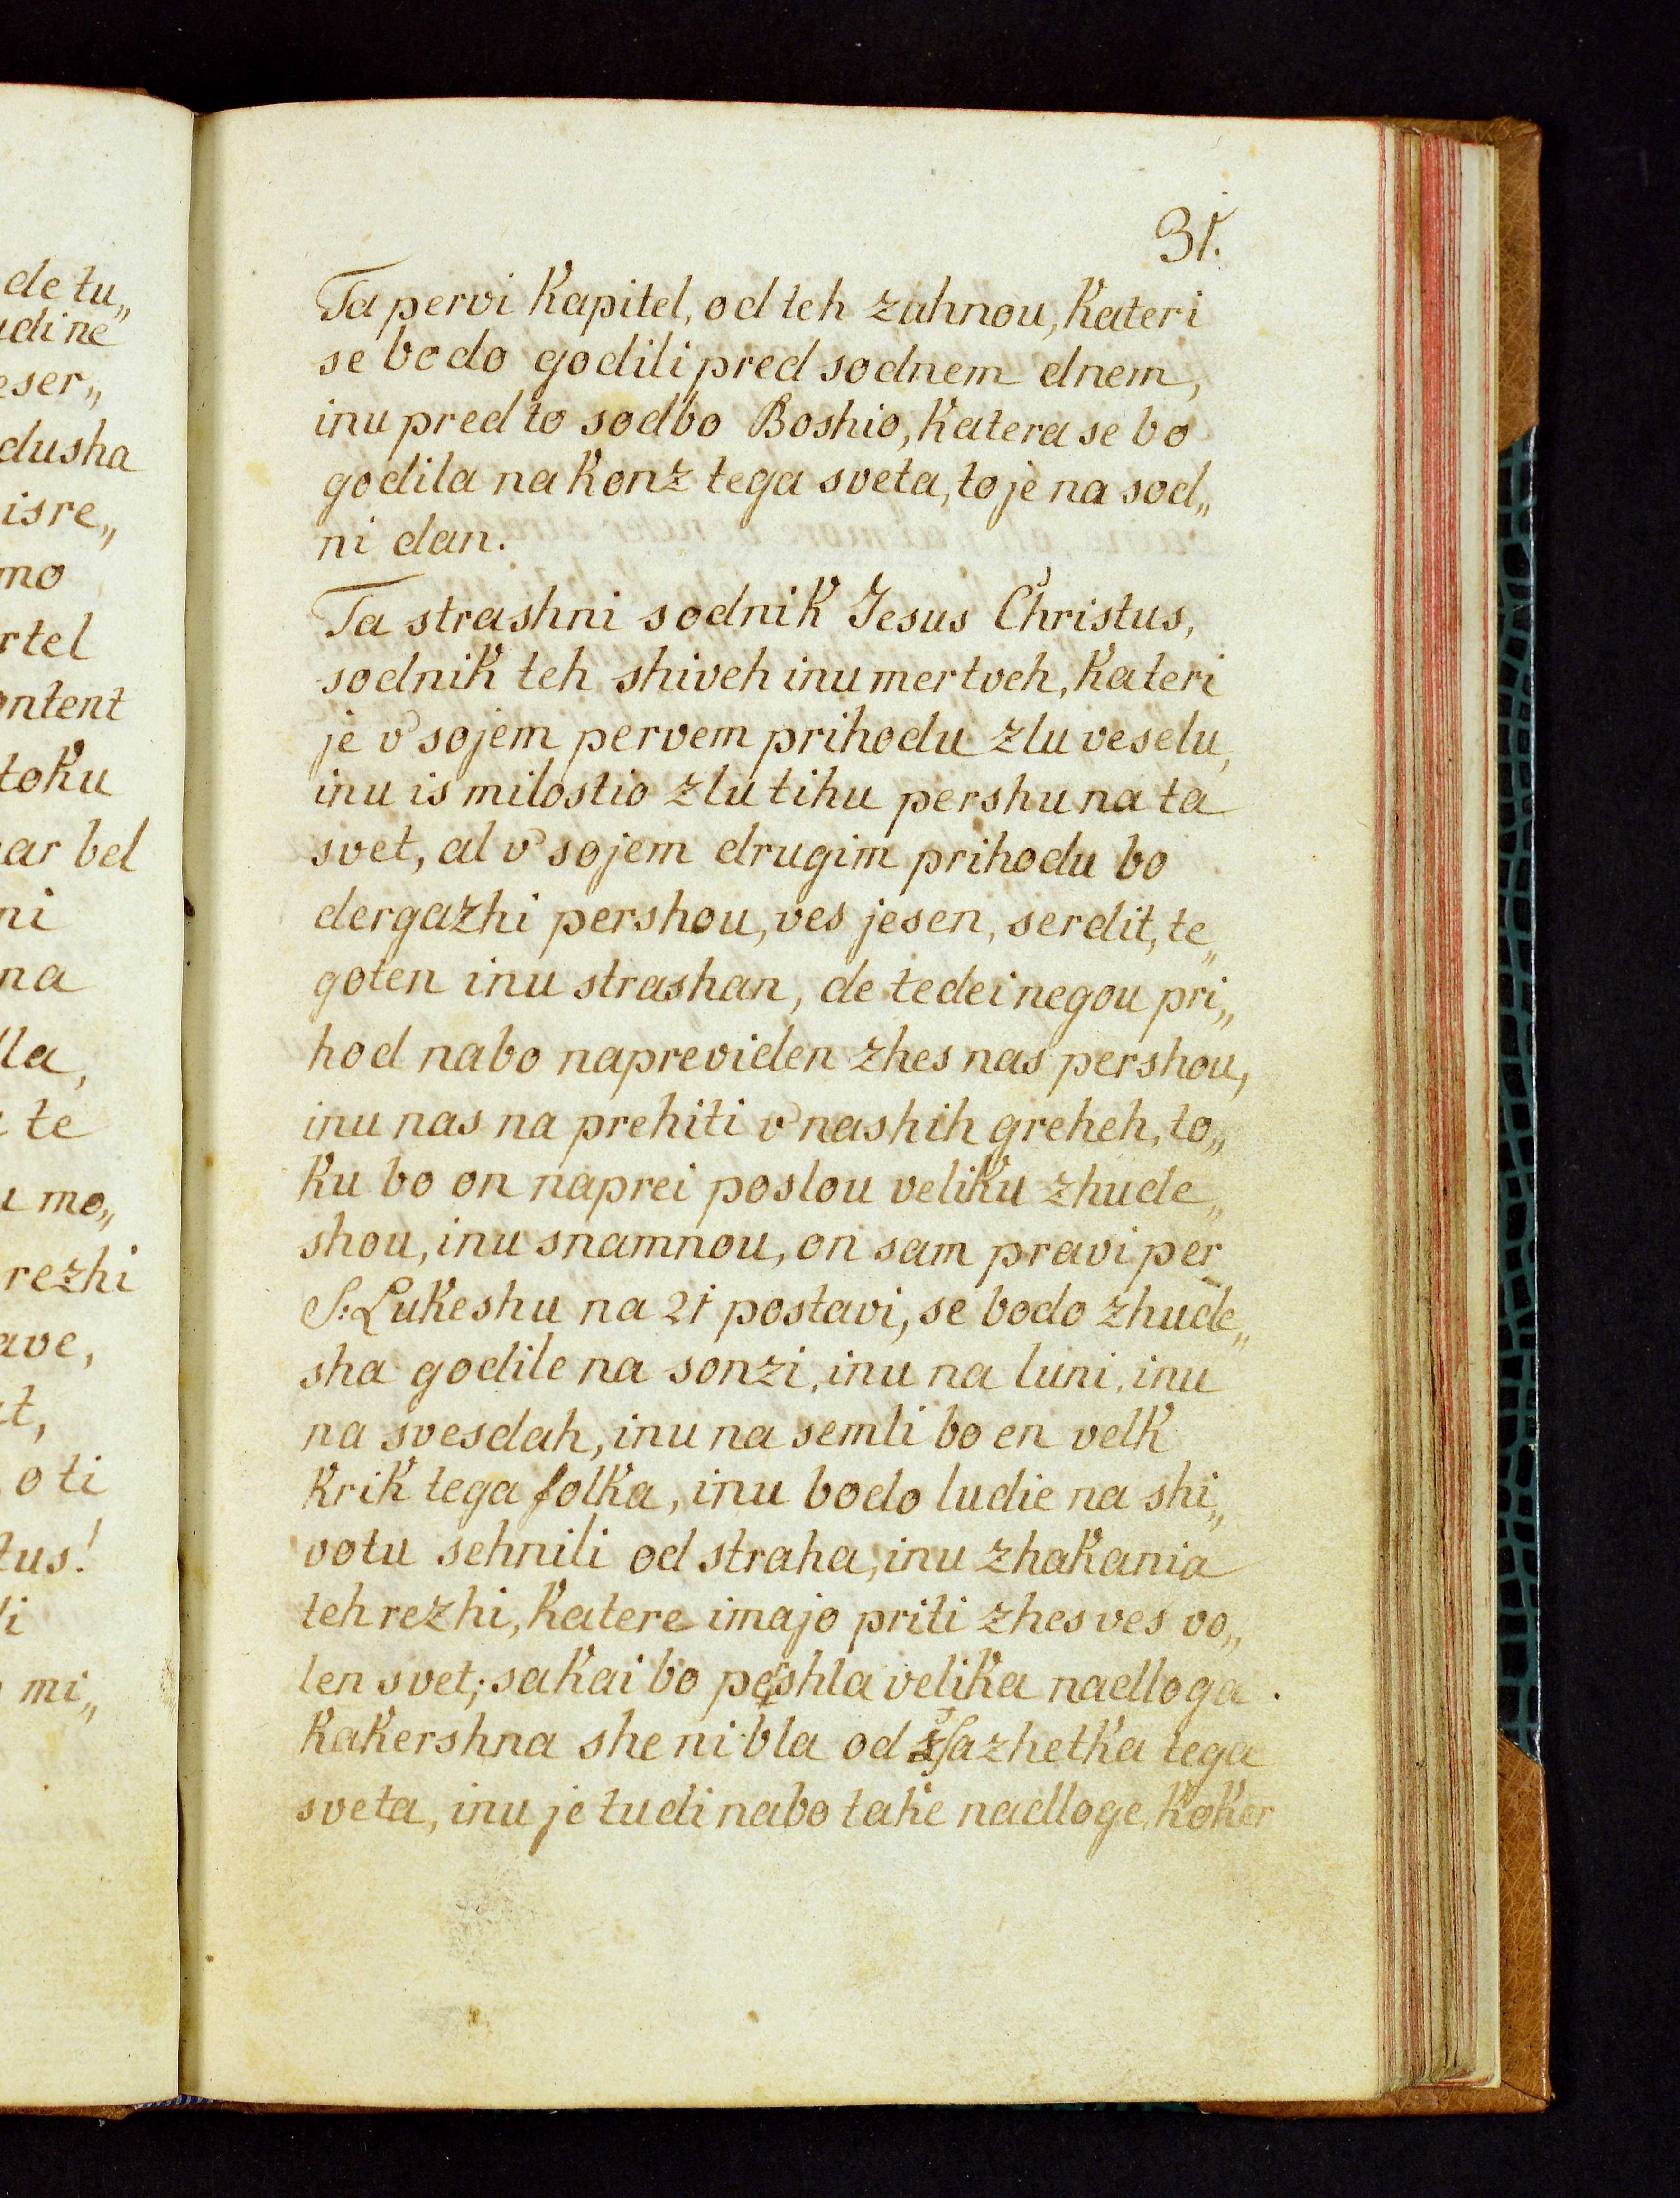 de tu„
udi ne
eser„
dusha
isre„
mo
rtel
ontent
toku
ar bel
ni
na
lla,
te
u mo„
rezhi
ave,
t,
o ti
tus!
li
mi„
31.
Ta pervi kapitel, od teh zahnou, kateri
se bodo godili pred sodnem dnem,
inu pred to sodbo Boshio, katera se bo
godila na konz tega sveta, to je na sod„
ni dan.
Ta strashni sodnik Jesus Christus,
sodnik teh shiveh inu mertveh, kateri
je v sojem pervem prihodu zlu veselu,
inu is milostio zlu tihu pershu na ta
svet, al v sojem drugim prihodu bo
dergazhi pershou, ves jesen, serdit, te„
goten inu strashan, de tedei negou pri„
hod nabo napreviden zhes nas pershou,
inu nas na prehiti v nashih greheh, to„
ku bo on naprei poslou veliku zhude„
shou, inu snamnou, on sam pravi per
S: Lukeshu na 21 postavi, se bodo zhude„
sha godile na sonzi, inu na luni, inu
na svesdah, inu na semli bo en velk
krik tega folka, inu bodo ludie na shi„
votu sehnili od straha, inu zhakania
teh rezhi, katere imajo priti zhes ves vo„
len svet; sakai bo peshla velika nadloga
kakershna she ni bla od sazhetka tega
sveta, inu je tudi nabo take nadloge, koker